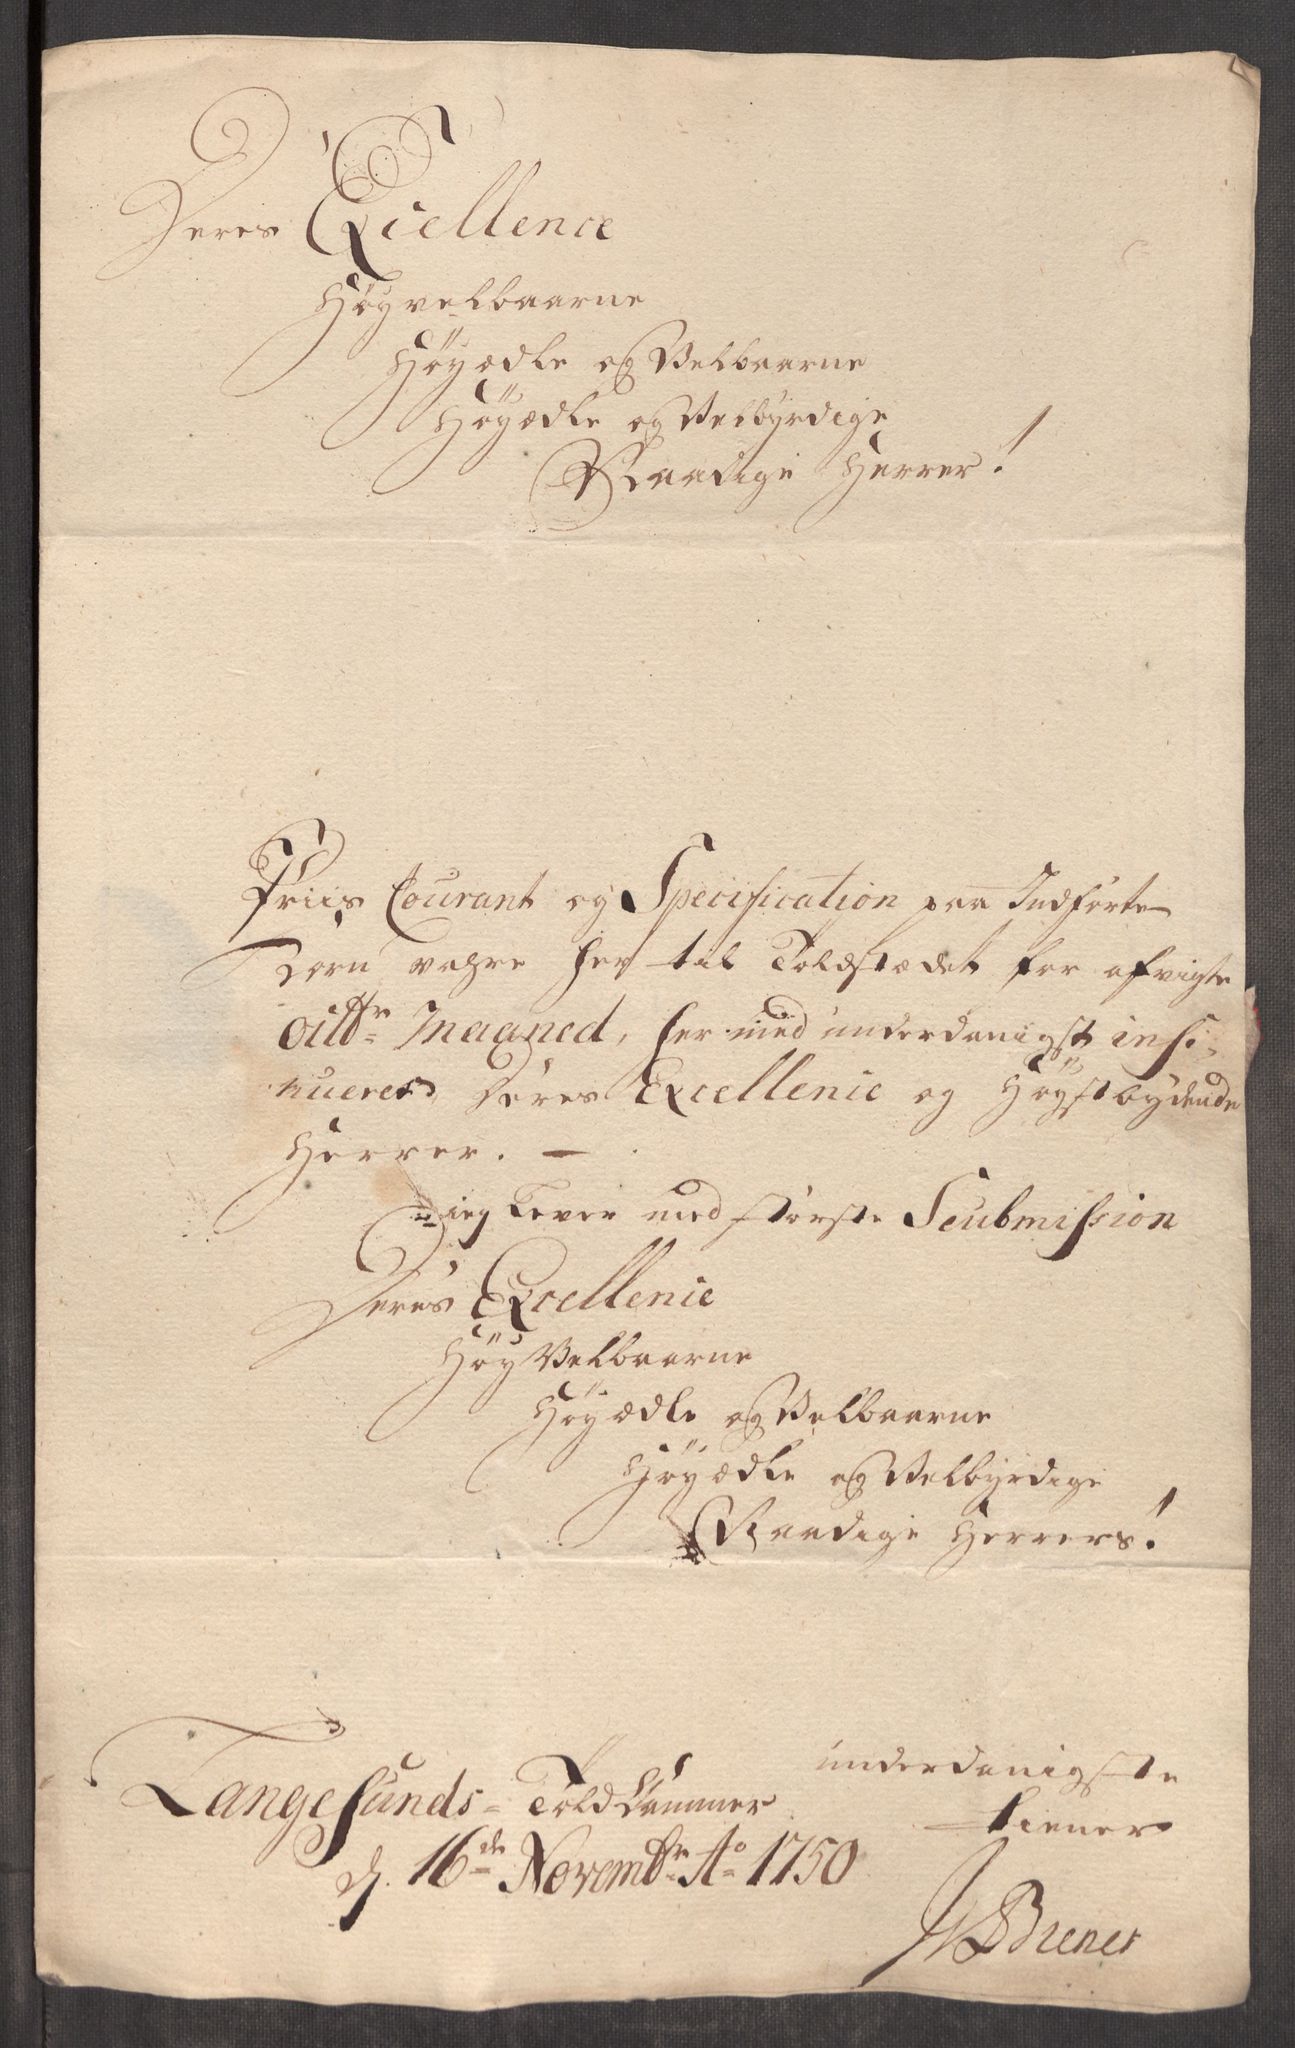 Deres Excellence
Høyvelbaarne
Høyædle og Velbaarne
Høyædle og Velbyrdige
Naadige Herrer!
Priis Courant og Specification paa Indførte
Korn vahre her til Toldstædet for afvigte
octbr Maaned, her med underdanigst insi-
nueres Deres Excellence og Høystbydende
Herrer. —
ieg lever med største Submission
Deres Excellence
HøyVelbaarne
Høyædle og Velbaarne
Høyædle og Velbyrdige
Naadige Herrers!
underdanigste
tiener
Langesunds Told Cammer
d. 16de Novembr Ao 1750